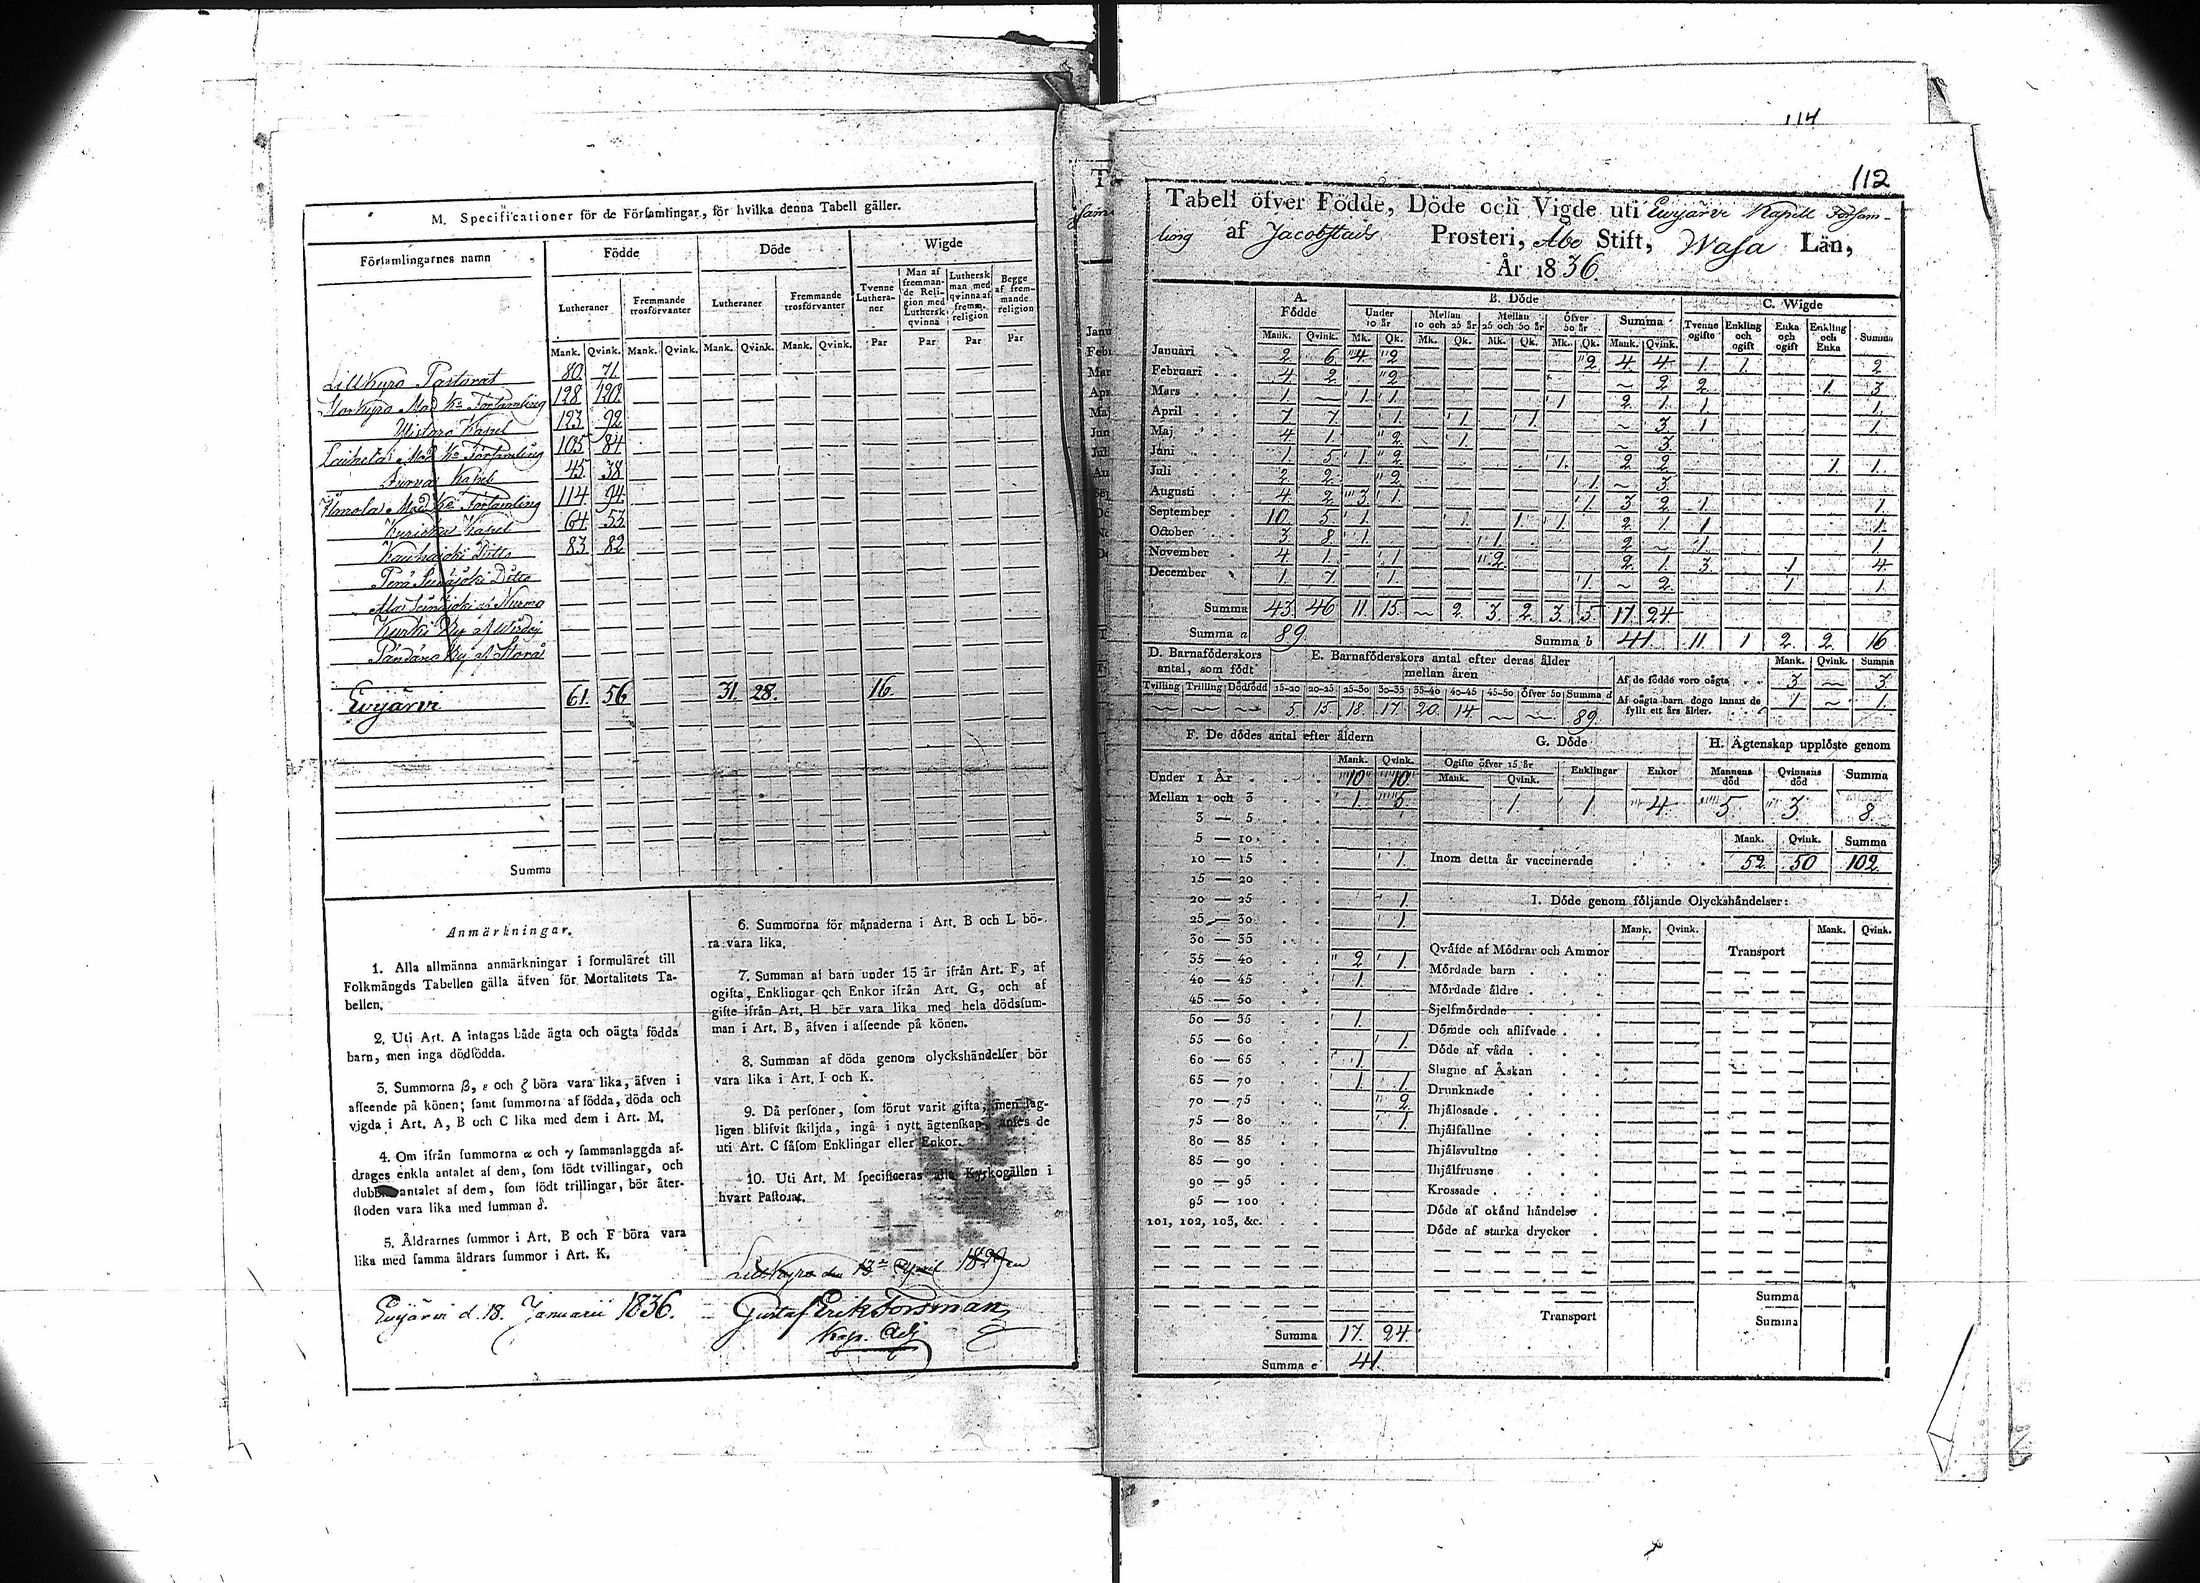 M. Specificationer för de Församlingar, för hvilka denna Tabell gäller.
Församlingarnes namn Födde Döde Wigde
Lutheraner Fremmande trosförvanter Lutheraner Fremmande trosförvanter Tvenne Lutheraner Man af fremmande Religion med Luthersk qvinna Luthersk man med qvinna af fremm. religion Begge af fremmande religion
Mank. Qvink. Mank. Qvink. Mank. Qvink. Mank. Qvink. Par Par Par Par
Lillkyro Pastorat 80 71
Storkyro Mod. Ke Församling 128 120
Ylistaro Kapel 123 92
Laihela Mod. Ke Församling 105 84
Jurva Kapel 45 38
Ilmola Mod. Ke Församling 114 94
Kurikka Kapel 64 53
Kauhajoki Ditto 83 82
Perä Seinäjoki Ditto
Evijärvi 61. 56 31. 28. 16.
Summa
Anmärkningar.
1. Alla allmänna anmärkningar i formuläret till
Folkmängds Tabellen gälla äfven för Mortalitets Ta-
bellen.
2. Uti Art. A intagas både ägta och oägta födda
barn, men inga dödfödda.
3. Summorna β, ε och ζ böra vara lika, äfven i
affeende på könen; samt summorna af födda, döda och
vigda i Art. A, B och C lika med dem i Art. M.
4. Om ifrån summorna α och γ sammanlaggda af-
drages enkla antalet af dem, som födt tvillingar, och
dubbla antalet af dem, som födt trillingar, bör åter-
stoden vara lika med summan δ.
5. Åldrarnes summor i Art. B och F böra vara
lika med samma åldrars summor i Art. K.
6. Summorna för månaderna i Art. B och L bö-
ra vara lika.
7. Summan af barn under 15 år ifrån Art. F, af
ogifta, Enklingar och Enkor ifrån Art. G, och af
gifte ifrån Art. H bör vara lika med hela dödssum-
man i Art. B, äfven i affeende på könen.
8. Summan af döda genom olyckshändelser bör
vara lika i Art. I och K.
9. Då personer, som förut varit gifta, men lag-
ligen blifvit skiljda, ingå i nytt ägtenskap, anses de
uti Art. C såsom Enklingar eller Enkor.
10. Uti Art. M specificeras alla Kyrkogällen i
hvart Pastorat.
Lillkyro den 13de April 1829
Evijärvi d. 18. Januarii 1836. Gustaf Erik Forsman
Kap. Adj
114
112
Tabell öfver Födde, Döde och Vigde uti Evijärvi Kapell Församling
af Jacobstads Prosteri, Åbo Stift, Wasa Län,
År 1836.
A. Födde B. Döde C. Wigde
Under 10 år Mellan 10 och 25 år Mellan 25 och 50 år Öfver 50 år Summa Tvenne ogifte Enkling och ogift Enka och ogift Enkling och Enka Summa
Mank. Qvink. Mk. Qk. Mk. Qk. Mk. Qk. Mk. Qk. Mank. Qvink.
Januari 2 6 4 2 2 4 4 1 1 2
Februari 4 2 2 ~ 2 2 1. 3
Mars 1 ~ 1 1 1 2 1 1 1
April 7 7 1 1 1 ~ 3 1 1
Maj 4 1 2 1 ~ 3
Juni 1 5 1 2 1 2 2 1 1
Juli 2 2 2 1 ~ 3
Augusti 4 2 3 1 1 3 2 1 1
September 10 5 1 1 1 1 2 1 1 1
October 3 8 1 1 2 ~ 1 1
November 4 1 1 2 2 1 3 1 4
December 1 7 1 1 ~ 2 1 1
Summa 43 46 11. 15. ~ 2. 3. 2. 3. 5. 17 24
Summa a 89 Summa b 41. 11. 1 2. 2. 16
D. Barnaföderskors antal, som födt E. Barnaföderskors antal efter deras ålder mellan åren Mank. Qvink. Summa
Af de födde voro oägta 3 ~ 3
Tvilling Trilling Dödfödd 15-20 20-25 25-30 30-35 35-40 40-45 45-50 Öfver 50 Summa d
Af oägta barn dogo innan de fyllt ett års ålder. 1 ~ 1
~ ~ ~ 5 15 18 17 20 14 ~ ~ 89
F. De dödes antal efter åldern G. Döde H. Ägtenskap upplöste genom
Mank. Qvink. Ogifte öfver 15 år Mank. Qvink. Enklingar Enkor Mannens död Qvinnans död Summa
Under 1 År 10 10
Mellan 1 och 3 1 5 1 1 4 5 3 8
3 — 5
5 — 10
10 — 15 1
15 — 20
20 — 25 1
25 — 30 1
30 — 35
35 — 40 2 1
40 — 45 1
45 — 50
50 — 55 1
55 — 60 1
60 — 65 1
65 — 70 1 1
70 — 75 2
75 — 80 1
80 — 85
85 — 90
90 — 95
95 — 100
101, 102, 103, &c.
Summa 17. 24
Summa e 41.
Mank. Qvink. Summa
Inom detta år vaccinerade 52 50 102
I. Döde genom följande Olyckshändelser:
Mank. Qvink. Mank. Qvink.
Qväfde af Mödrar och Ammor Transport
Mördade barn
Mördade äldre
Sjelfmördade
Dömde och aflifvade
Döde af våda
Slagne af Åskan
Drunknade
Ihjälosade
Ihjälfallne
Ihjälsvultne
Ihjälfrusne
Krossade
Döde af okänd händelse
Döde af starka drycker
Summa
Transport Summa